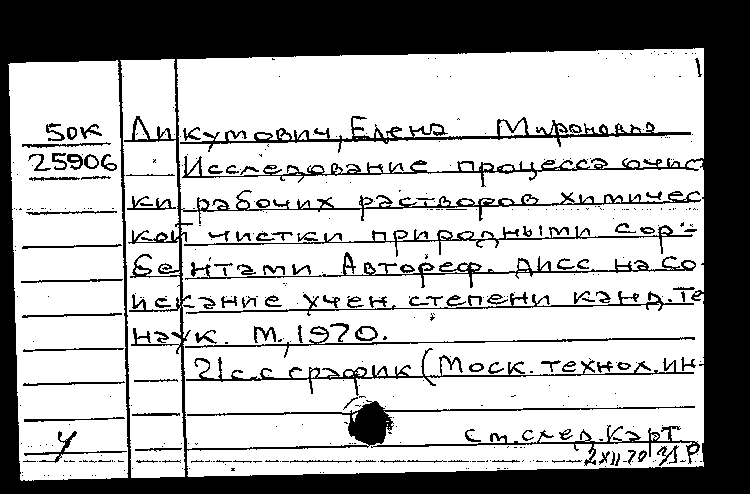 1
50К Ликумович, Елена Мироновна
25906 Исследование процесса очис
ки рабочих растворов химичес
кой чистки природными сор-
бентами. Автореф. дисс. на со
искание учен. степени канд. те
наук. М., 1970.
21 с. с график (Моск. технол. ин-
У см. след. карт
2 XII 70